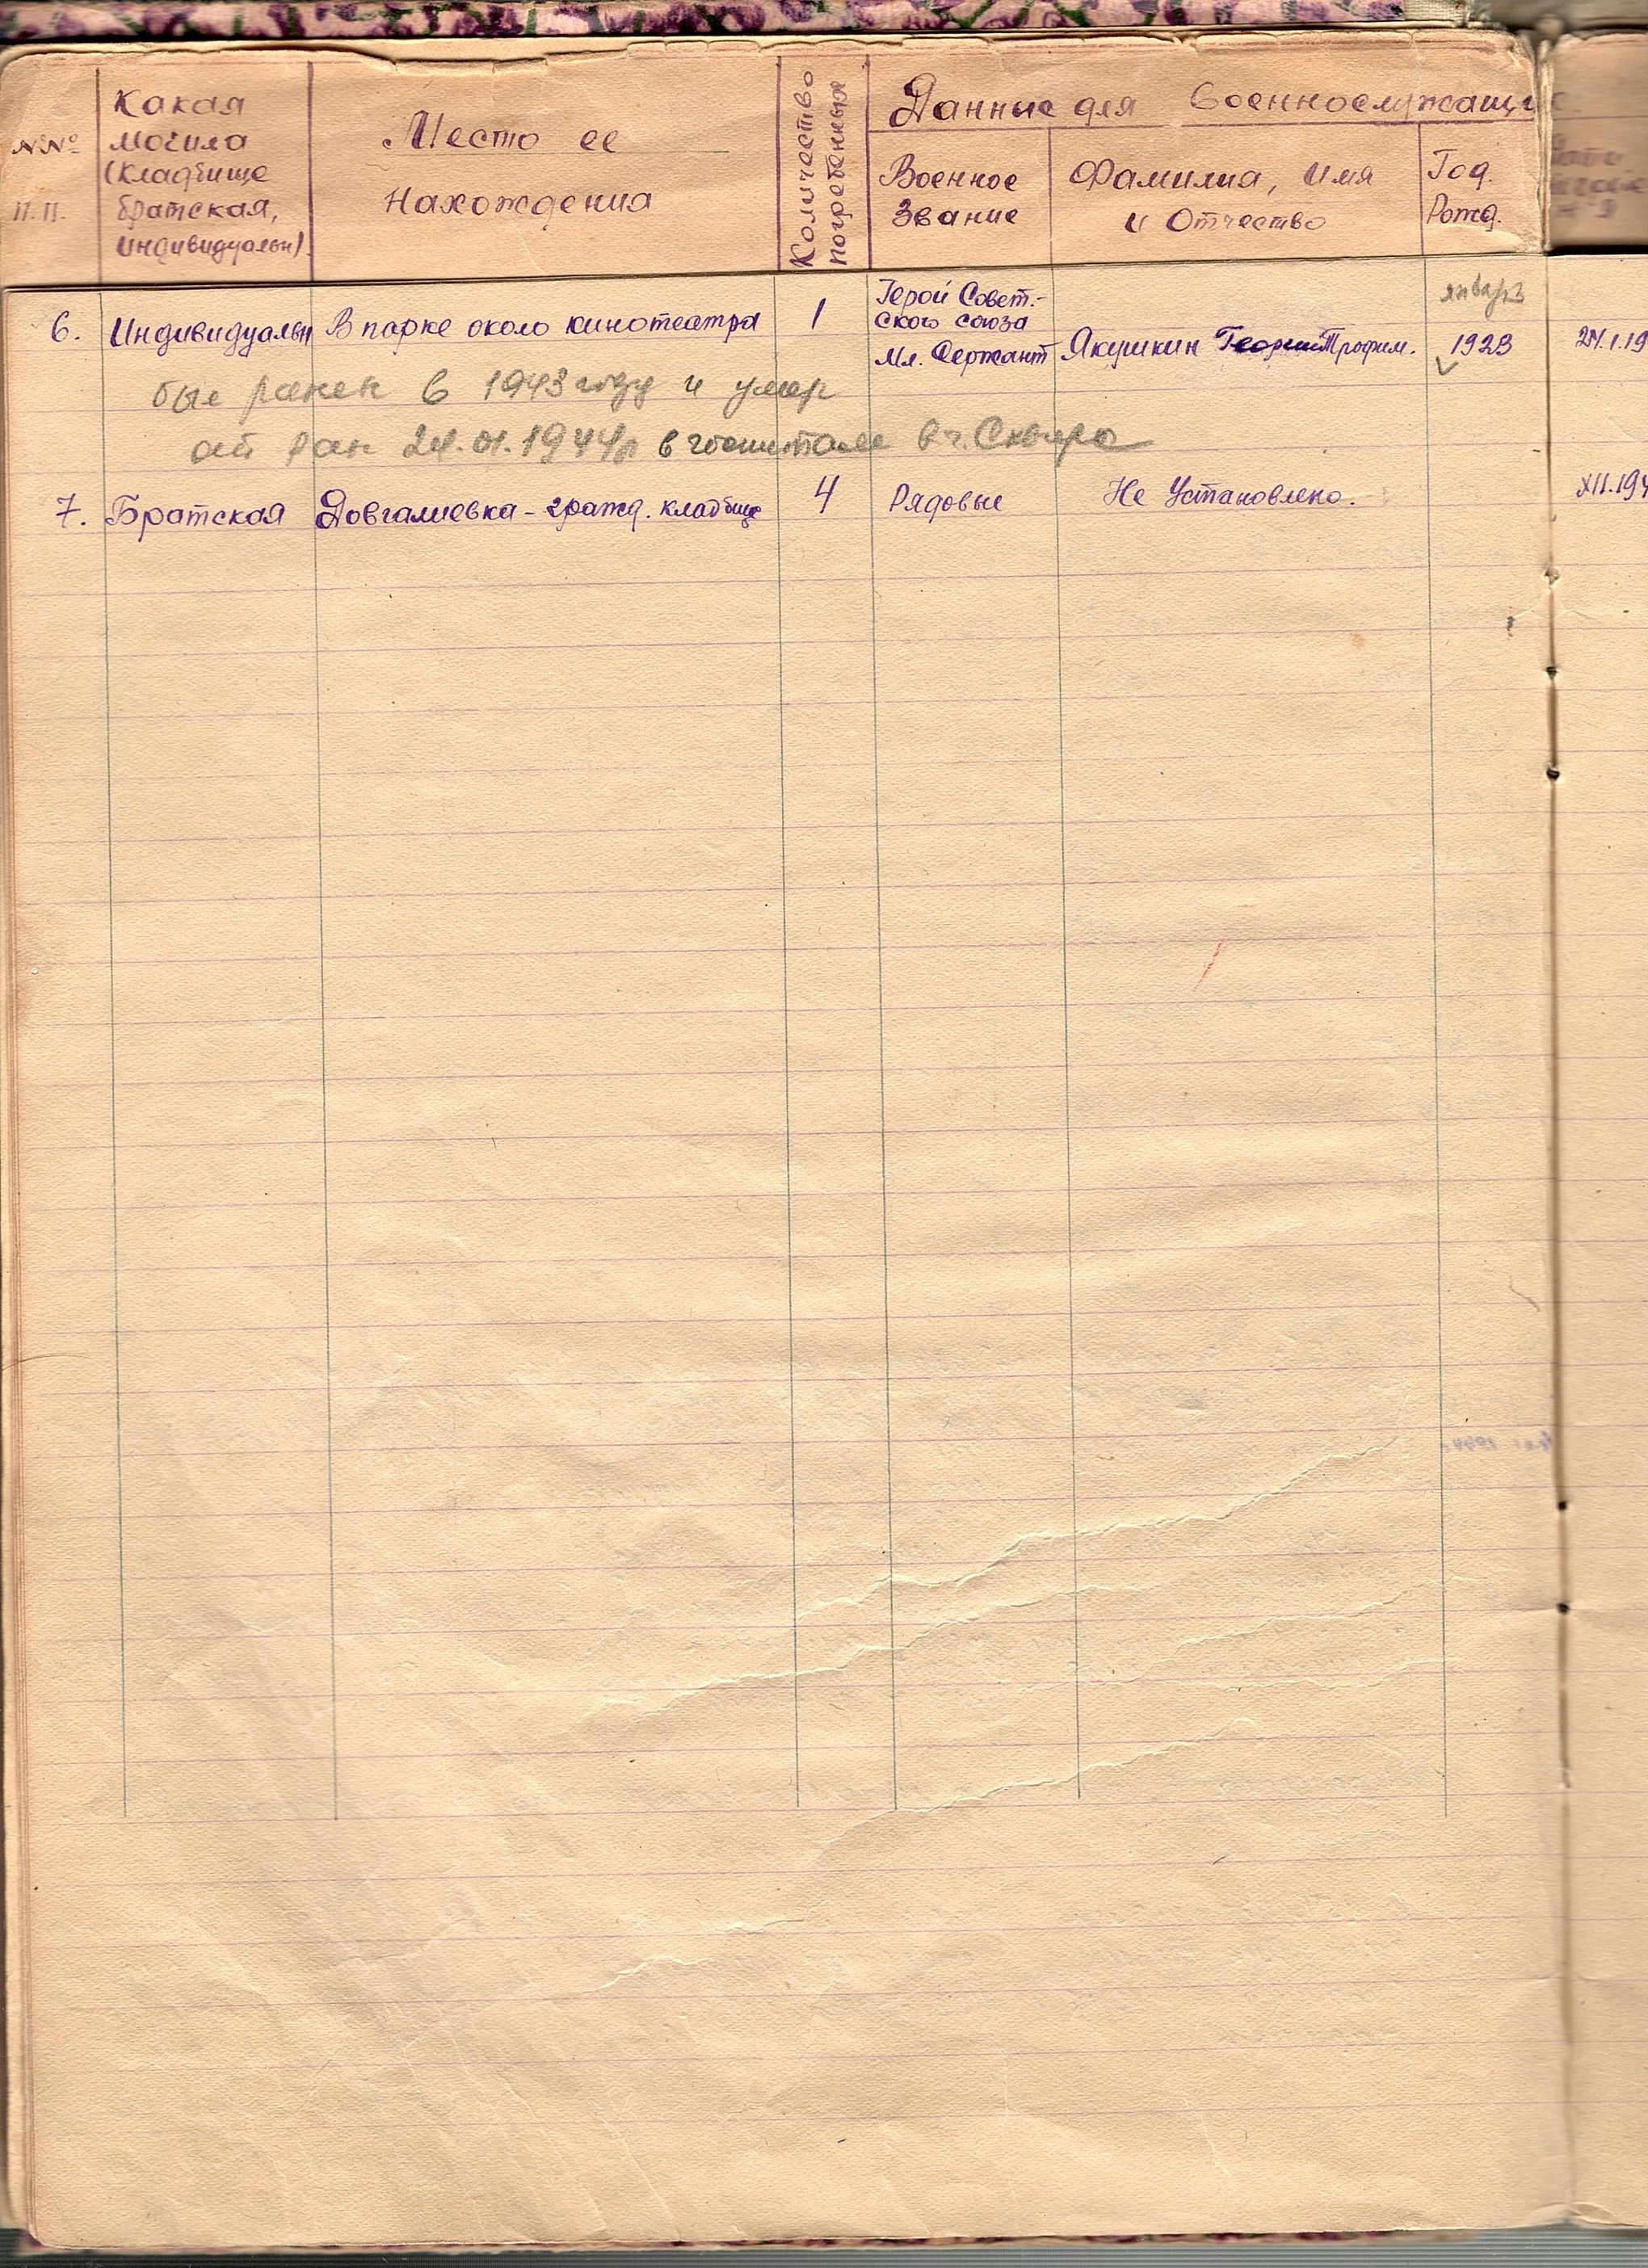 №№ п.п.
Какая
могила
(Кладбище
братская,
индивидуальн).
Место ее
нахождения
Количество
погребенных
Данные для военнослужащи
Военное
Звание
Фамилия, Имя
и Отчество
Год.
Рожд.
январь
6. Индивидуальн В парке около кинотеатра 1 Герой Совет-
ского союза
Мл. Сержант Якушкин Трофим. 1923 24.1.19
был ранен в 1943 году и умер
от ран 24.01.1944г в госпитале в г. Сквира
7. Братская Довгалиевка - гражд. кладбище 4 Рядовые Не Установлено. XII.194